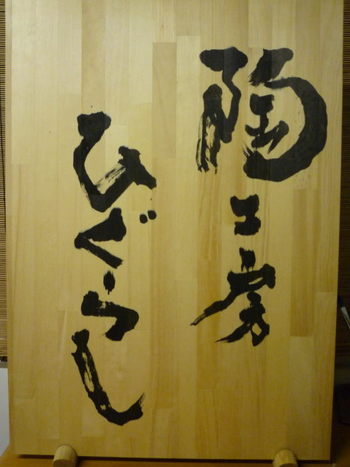 陶工房
ひぐらし